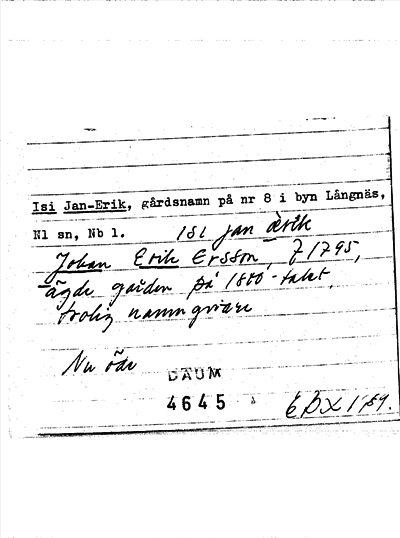 Isi Jan-Erik, gårdsnamn på nr 8 i byn Långnäs,
Nl sn, Nb l. isi jan ærik
Johan Erik Ersson, f 1795,
ägde gården på 1800-talet,
trolig namngivare
Nu öde
DAUM
4645
EBX 1989.